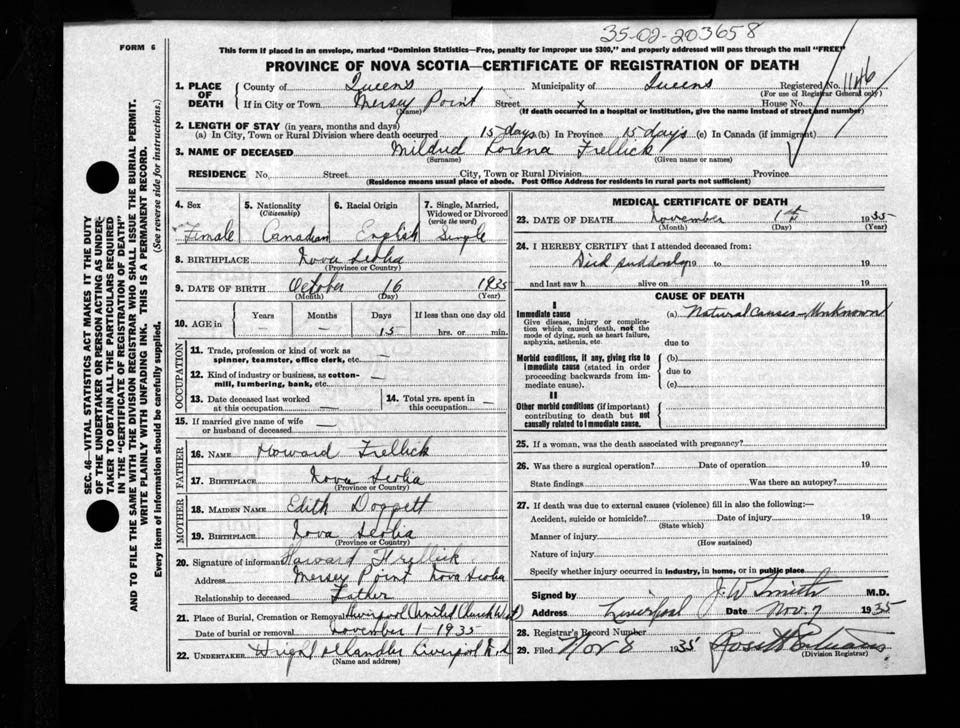 35-02-203658
FORM 6
This form if placed in an envelope, marked "Dominion Statistics—Free, penalty for improper use $300," and properly addressed will pass through the mail "FREE"
PROVINCE OF NOVA SCOTIA—CERTIFICATE OF REGISTRATION OF DEATH
1. PLACE OF DEATH
County of Queens Municipality of Queens Registered No. 1146
(For use of Registrar General only)
If in City or Town Mersey Point Street x House No.
(Name) (If death occurred in a hospital or institution, give the name instead of street and number)
2. LENGTH OF STAY (in years, months and days)
(a) In City, Town or Rural Division where death occurred 15 days (b) In Province 15 days (c) In Canada (if immigrant)
3. NAME OF DECEASED Mildred Lorena Frellick
(Surname) (Given name or names)
RESIDENCE No. Street City, Town or Rural Division Province
(Residence means usual place of abode. Post Office Address for residents in rural parts not sufficient)
4. Sex
Female
5. Nationality
(Citizenship)
Canadian
6. Racial Origin
English
7. Single, Married,
Widowed or Divorced
(write the word)
Single
8. BIRTHPLACE Nova Scotia
(Province or Country)
9. DATE OF BIRTH October 16 1935
(Month) (Day) (Year)
10. AGE in
Years Months Days If less than one day old
— — 15 hrs. or min.
OCCUPATION
11. Trade, profession or kind of work as
spinner, teamster, office clerk, etc. —
12. Kind of industry or business, as cotton-
mill, lumbering, bank, etc. —
13. Date deceased last worked
at this occupation —
14. Total yrs. spent in
this occupation —
15. If married give name of wife
or husband of deceased —
FATHER
16. NAME Howard Frellick
17. BIRTHPLACE Nova Scotia
(Province or Country)
MOTHER
18. MAIDEN NAME Edith Doggett
19. BIRTHPLACE Nova Scotia
(Province or Country)
20. Signature of informant Howard Frellick
Address Mersey Point Nova Scotia
Relationship to deceased Father
21. Place of Burial, Cremation or Removal Liverpool (United Church
Date of burial or removal November 1 - 1935
22. UNDERTAKER Liverpool N.S
(Name and address)
MEDICAL CERTIFICATE OF DEATH
23. DATE OF DEATH November 1th 1935
(Month) (Day) (Year)
24. I HEREBY CERTIFY that I attended deceased from:
Died suddenly 19 to 19
and last saw h alive on 19
CAUSE OF DEATH
I
Immediate cause
Give disease, injury or complica-
tion which caused death, not the
mode of dying, such as heart failure,
asphyxia, asthenia, etc.
(a) Natural Causes — Unknown
due to
Morbid conditions, if any, giving rise to
immediate cause (stated in order
proceeding backwards from im-
mediate cause).
(b)
due to
(c)
II
Other morbid conditions (if important)
contributing to death but not
causally related to immediate cause.
25. If a woman, was the death associated with pregnancy?
26. Was there a surgical operation? Date of operation 19
State findings Was there an autopsy?
27. If death was due to external causes (violence) fill in also the following:—
Accident, suicide or homicide? Date of injury 19
(State which)
Manner of injury
(How sustained)
Nature of injury
Specify whether injury occurred in industry, in home, or in public place
Signed by J. W. Smith M.D.
Address Liverpool Date Nov. 7 1935
28. Registrar's Record Number
29. Filed Nov 8 1935
(Division Registrar)
SEC. 46—VITAL STATISTICS ACT MAKES IT THE DUTY
OF THE UNDERTAKER OR PERSON ACTING AS UNDER-
TAKER TO OBTAIN ALL THE PARTICULARS REQUIRED
IN THE "CERTIFICATE OF REGISTRATION OF DEATH"
AND TO FILE THE SAME WITH THE DIVISION REGISTRAR WHO SHALL ISSUE THE BURIAL PERMIT.
WRITE PLAINLY WITH UNFADING INK. THIS IS A PERMANENT RECORD.
Every item of information should be carefully supplied. (See reverse side for instructions.)